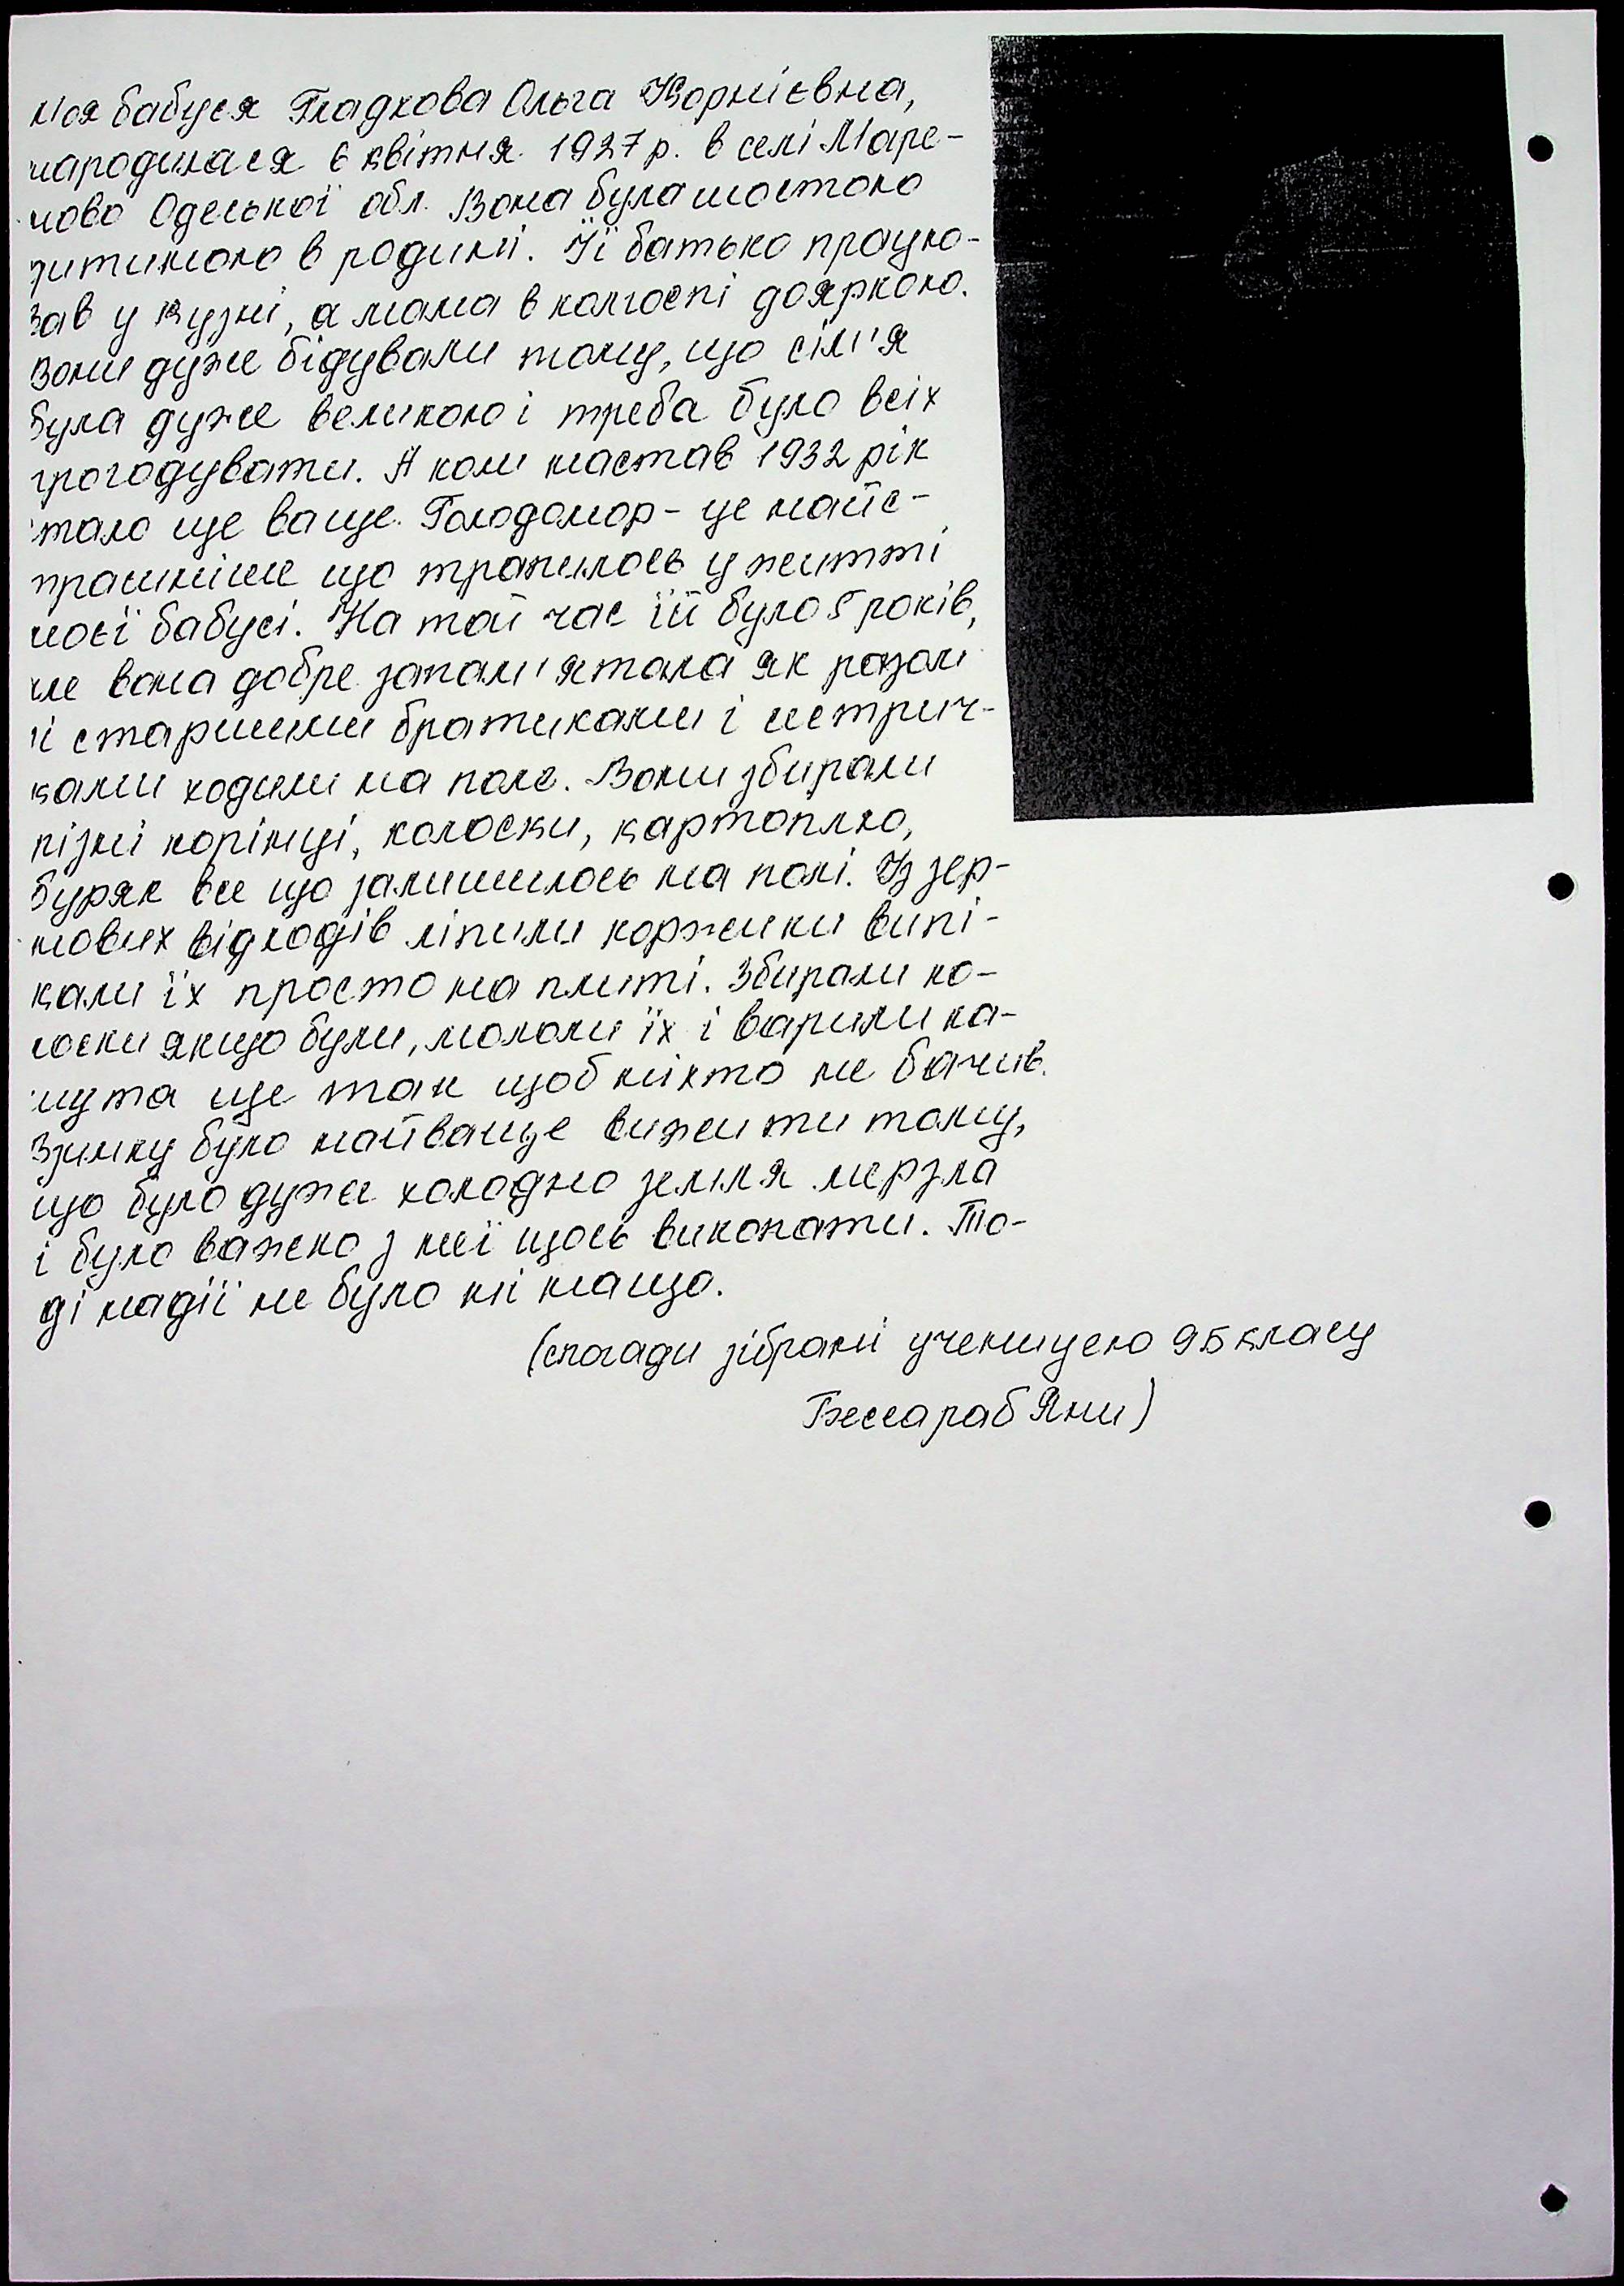 Моя бабуся Гладкова Ольга Корніївна,
народилася 6 квітня 1927 р. в селі Маре-
ново Одеської обл. Вона була шостою
дитиною в родині. Її батько працю-
вав у кузні, а мама в колгоспі дояркою.
Вони дуже бідували тому, що сім'я
була дуже великою і треба було всіх
прогодувати. А коли настав 1932 рік
стало ще важще. Голодомор - це найс-
трашніше що трапилось у житті
моєї бабусі. На той час їй було 5 років,
але вона добре запам'ятала як разом
зі старшими братиками і сестрич-
ками ходили на поле. Вони збирали
різні корінці, колоски, картоплю,
буряк все що залишилось на полі. Із зер-
нових відходів ліпили коржики випі-
кали їх просто на плиті. Збирали ко-
лоски якщо були, мололи їх і варили ка-
шу та ще так щоб ніхто не бачив.
Взимку було найважще вижити тому,
що було дуже холодно земля мерзла
і було важко з неї щось викопати. То-
ді надії не було ні нащо.
(спогади зібрані ученицею 9Б класу
Бессараб Яни)